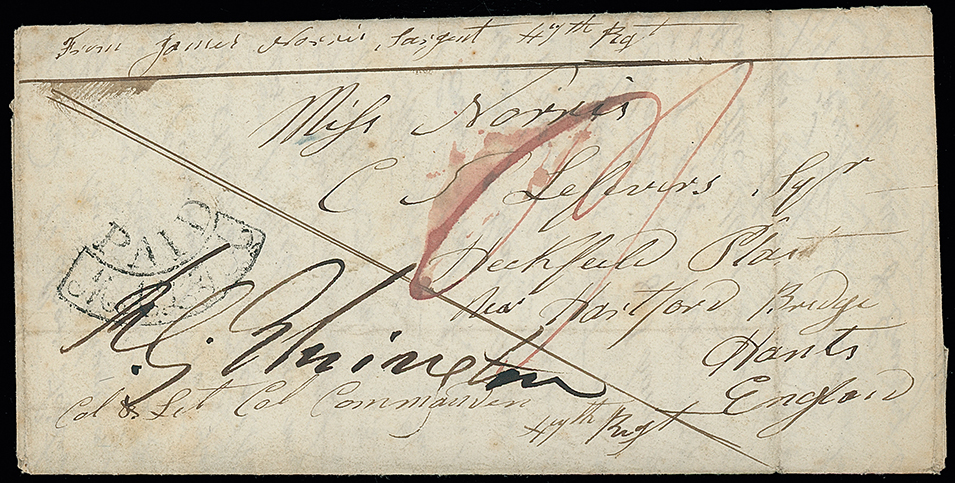 From James Norris, Sargent 47th Rgt
Miss Norris
C S Lefevers Sqr
Heckfield Place
Near Hartford Bridge
Hants
England
PAID
Col & Let Col Commanden
47th Regt